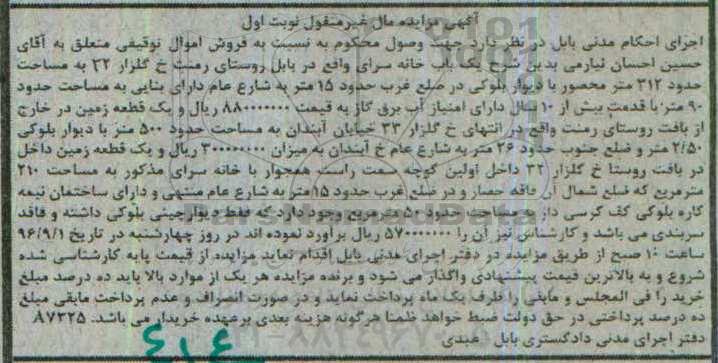 آگهی مزایده مال غیرمنقول نوبت اول
اجرای احکام مدنی بابل در نظر دارد جهت وصول محکوم به نسبت به فروش اموال توقیفی متعلق به آقای
حسین احسان نیارمی بدین شرح یک باب خانه سرای واقع در بابل روستای رمنت خ گلزار ۲۲ به مساحت
حدود ۳۱۲ متر محصور با دیوار بلوکی در ضلع غرب حدود ۱۵ متر به شارع عام دارای بنایی به مساحت حدود
۹۰ متر با قدمت بیش از ۱۰ سال دارای امتیاز آب برق گاز به قیمت ۸۸۰۰۰۰۰۰۰ ریال و یک قطعه زمین در خارج
از بافت روستای رمنت واقع در انتهای خ گلزار ۳۳ خیابان آبندان به مساحت حدود ۵۰۰ متر با دیوار بلوکی
۲/۵۰ متر و ضلع جنوب حدود ۲۶ متر به شارع عام خ آبندان به میزان ۳۰۰۰۰۰۰۰۰ ریال و یک قطعه زمین داخل
در بافت روستا خ گلزار ۳۲ داخل اولین کوچه سمت راست همجوار با خانه سرای مذکور به مساحت ۲۱۰
مترمربع که ضلع شمال آن فاقد حصار و در ضلع غرب حدود ۱۵ متر به شارع عام منتهی و دارای ساختمان نیمه
کاره بلوکی کف کرسی دار و مساحت حدود ۵۰ مترمربع وجود دارد که فقط دیوارچینی بلوکی داشته و فاقد
سربندی می باشد و کارشناس نیز آن را ۵۷۰۰۰۰۰۰۰ ریال برآورد نموده اند در روز چهارشنبه در تاریخ ۹۶/۹/۱
ساعت ۱۰ صبح از طریق مزایده در دفتر اجرای مدنی بابل اقدام نماید مزایده از قیمت پایه کارشناسی شده
شروع و به بالاترین قیمت پیشنهادی واگذار می شود و برنده مزایده هر یک از موارد بالا باید ده درصد مبلغ
خرید را فی المجلس و مابقی را ظرف یک ماه پرداخت نماید و در صورت انصراف و عدم پرداخت مابقی مبلغ
ده درصد پرداختی در حق دولت ضبط خواهد ظمنا هرگونه هزینه بعدی برعهده خریدار می باشد. ۸۷۳۲۵
دفتر اجرای مدنی دادگستری بابل عبدی